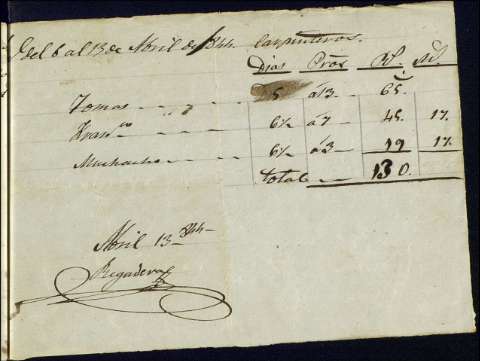 del 6 al 13 de Abril de 844. Carpinteros.
Dias Pros Rs. Ms.
Tomas 5 á 13 65.
Fran.co 6½ á 7 45. 17.
Muchacho 6½ á 3 19 17.
total 130.
Abril 13 844